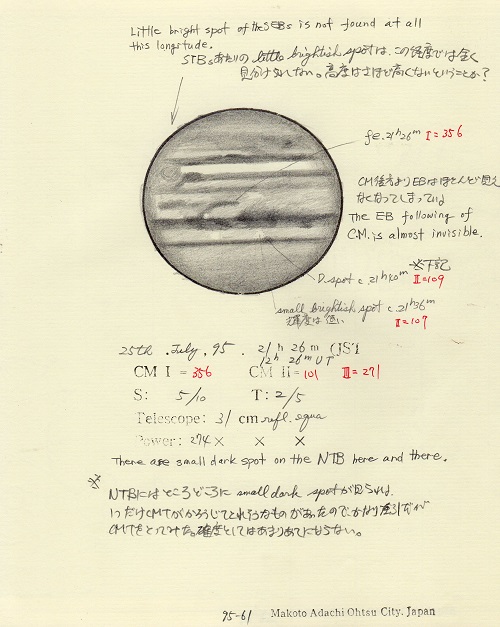 Little bright spot of the SEBs is not found at all
this longitude.
STBsあたりの little brightish spot は、この経度では全く
見分けられない。高度はさほど高くないということか?
fe. 21h 26m I = 356
CM後方よりEBはほとんど見え
なくなってしまっている
The EB following of
C.M. is almost invisible.
※下記
D. spot c. 21h 40m II = 109
small brightish spot c. 21h 36m
輝度は低い II = 107
25th . July . 95 . 21h 26m (JST
12h 26m UT
CM I = 356 CM II = 101 III = 271
S: 5/10 T: 2/5
Telescope: 31 cm refl. squa
Power: 274 × × ×
There are small dark spot on the NTB here and there.
※
NTBにはところどころに small dark spot が見られる.
1つだけCMTがかろうじてとれそうなものがあったので、かなり
CMTをとってみた。確度としてはあまりあてにならない。
95-61 Makoto Adachi Ohtsu City. Japan